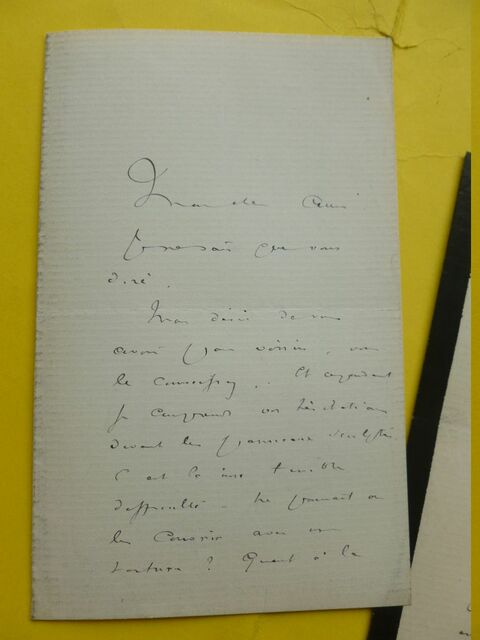 Mon cher Ami
Je ne sais que vous
dire.
Mon désir de vous
avoir pour voisin, vous
le connaissez.. Et cependant
je comprends vos hésitations
devant les panneaux sculptés
C'est là une terrible
difficulté - Ne pourrait on
les couvrir avec une
tenture ? Quant à la